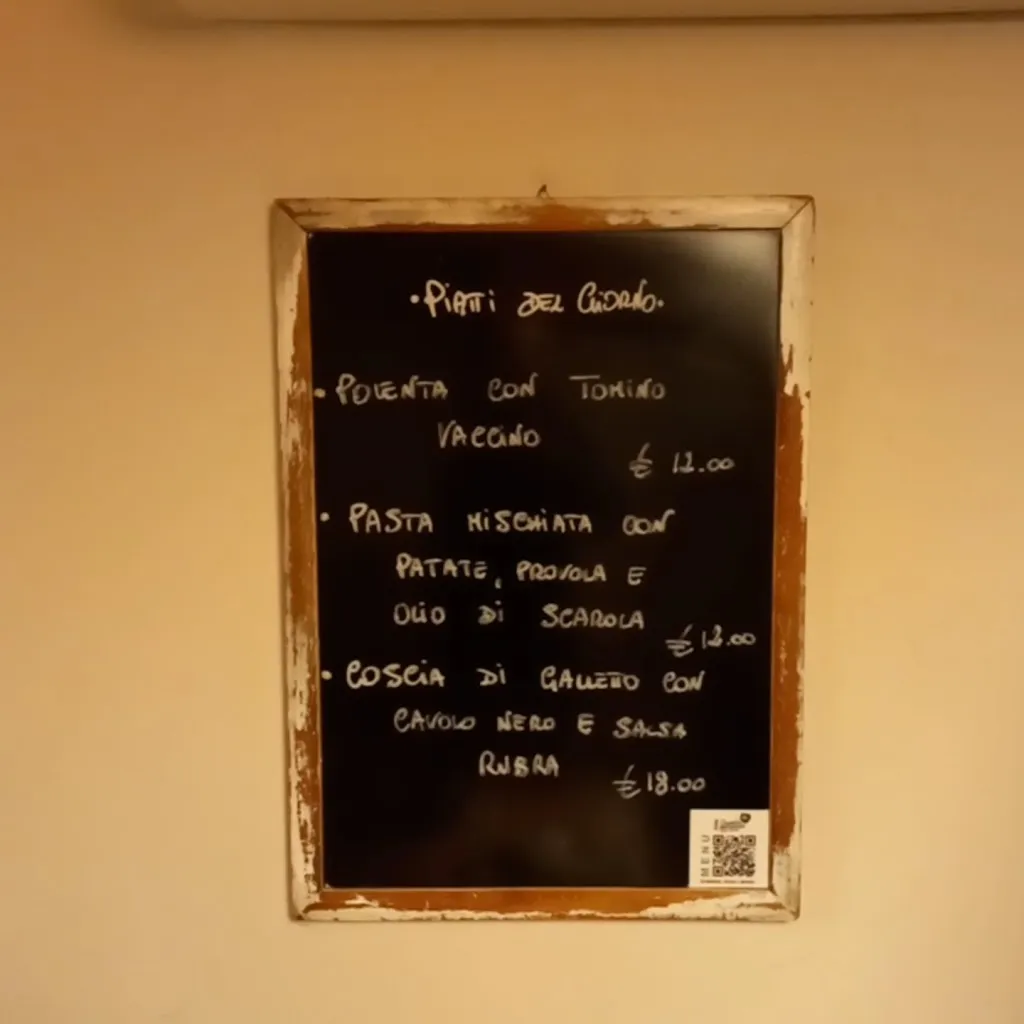 • PiATTi DEL GiORNO •
• POLENTA CON TOMINO
VACCINO
€ 12.00
• PASTA MISCHIATA CON
PATATE, PROVOLA E
OLIO Di SCAROLA
€ 12.00
• COSCiA Di GALLETTO CON
CAVOLO NERO E SALSA
RUBRA
€ 18.00
MENU